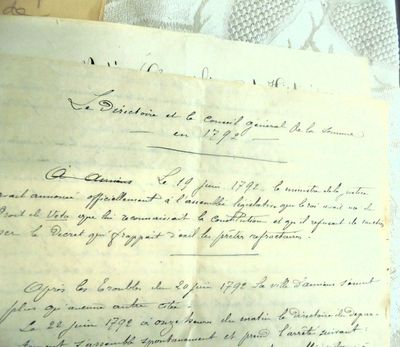 de !
Le Directoire et le Conseil général de la Somme
en 1792
A Amiens Le 19 juin 1792, le ministre de la justice
avait annoncé officiellement à l'assemblée législative que le roi avait usé du
droit de Veto que lui reconnaissait la constitution et qu'il refusait de
ser le Décret qui frappait d'exil les prêtres réfractaires.
Après les troubles du 20 juin 1792 la ville d'amiens s'émut
plus qu'aucune autre cité.
Le 22 juin 1792 à onze heures du matin le Directoire du dépar-
tement s'assemble spontanément et prend l'arrêté suivant :